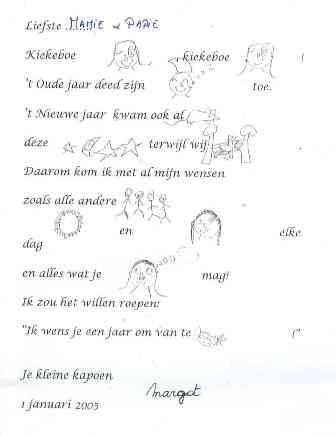 Liefste MAMIE & PAPIE
Kiekeboe kiekeboe !
't Oude jaar deed zijn toe.
't Nieuwe jaar kwam ook al
deze terwijl wij
Daarom kom ik met al mijn wensen
zoals alle andere
en elke
dag
en alles wat je mag!
Ik zou het willen roepen:
"Ik wens je een jaar om van te !"
Je kleine kapoen
Margot
1 januari 2005